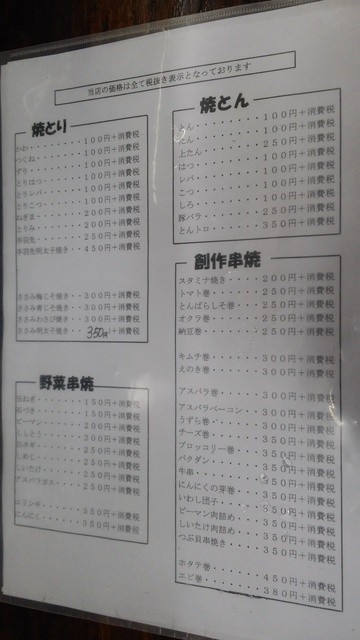 当店の価格は全て税抜き表示となっております
焼とり
かわ・・・・・・・・100円＋消費税
つくね・・・・・・・100円＋消費税
ずり・・・・・・・・100円＋消費税
とりはつ・・・・・・100円＋消費税
とりレバ・・・・・・100円＋消費税
とりこつ・・・・・・100円＋消費税
ねぎま・・・・・・・200円＋消費税
とりみ・・・・・・・200円＋消費税
手羽先・・・・・・・250円＋消費税
手羽先明太子焼き・・450円＋消費税
ささみ梅じそ焼き・・300円＋消費税
ささみ青じそ焼き・・300円＋消費税
ささみわさび焼き・・300円＋消費税
ささみ明太子焼き・・350円＋消費税
野菜串焼
玉ねぎ・・・・・・・150円＋消費税
石づき・・・・・・・150円＋消費税
ピーマン・・・・・・200円＋消費税
ししとう・・・・・・200円＋消費税
白ネギ・・・・・・・250円＋消費税
しめじ・・・・・・・250円＋消費税
しいたけ・・・・・・250円＋消費税
アスパラガス・・・・250円＋消費税
エリンギ・・・・・・350円＋消費税
にんにく・・・・・・350円＋消費税
焼とん
とん・・・・・・・・100円＋消費税
たん・・・・・・・・100円＋消費税
上たん・・・・・・・250円＋消費税
はつ・・・・・・・・100円＋消費税
レバ・・・・・・・・100円＋消費税
こつ・・・・・・・・100円＋消費税
しろ・・・・・・・・100円＋消費税
豚バラ・・・・・・・250円＋消費税
とんトロ・・・・・・350円＋消費税
創作串焼
スタミナ焼き・・・・200円＋消費税
トマト巻・・・・・・250円＋消費税
とんばらしそ巻・・・250円＋消費税
オクラ巻・・・・・・250円＋消費税
納豆巻・・・・・・・250円＋消費税
キムチ巻・・・・・・300円＋消費税
えのき巻・・・・・・300円＋消費税
アスパラ巻・・・・・300円＋消費税
アスパラベーコン・・300円＋消費税
うずら巻・・・・・・300円＋消費税
チーズ巻・・・・・・350円＋消費税
ブロッコリー巻・・・350円＋消費税
バクダン・・・・・・350円＋消費税
牛串・・・・・・・・350円＋消費税
にんにくの芽巻・・・350円＋消費税
いわし団子・・・・・350円＋消費税
ピーマン肉詰め・・・350円＋消費税
しいたけ肉詰め・・・350円＋消費税
つぶ貝串焼き・・・・350円＋消費税
ホタテ巻・・・・・・450円＋消費税
エビ巻・・・・・・・380円＋消費税